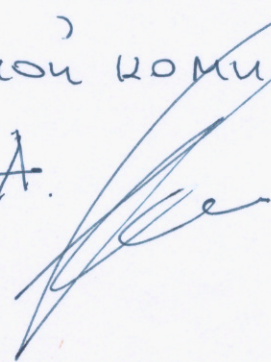 ной коми
А.